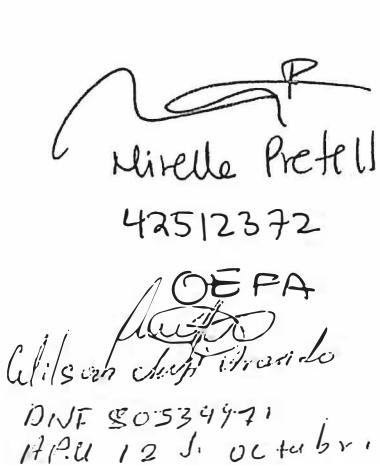 Mirella Pretell
42512372
OEFA
Wilson
DNI 80534971
APU 12 de octubre